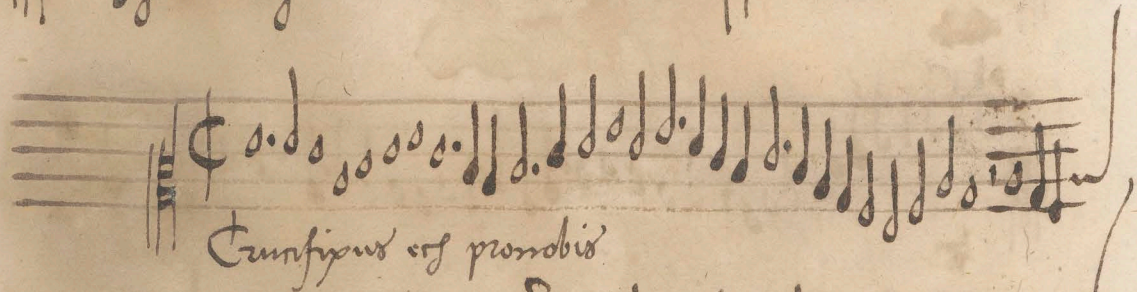 Crucifixus ecs pronobis